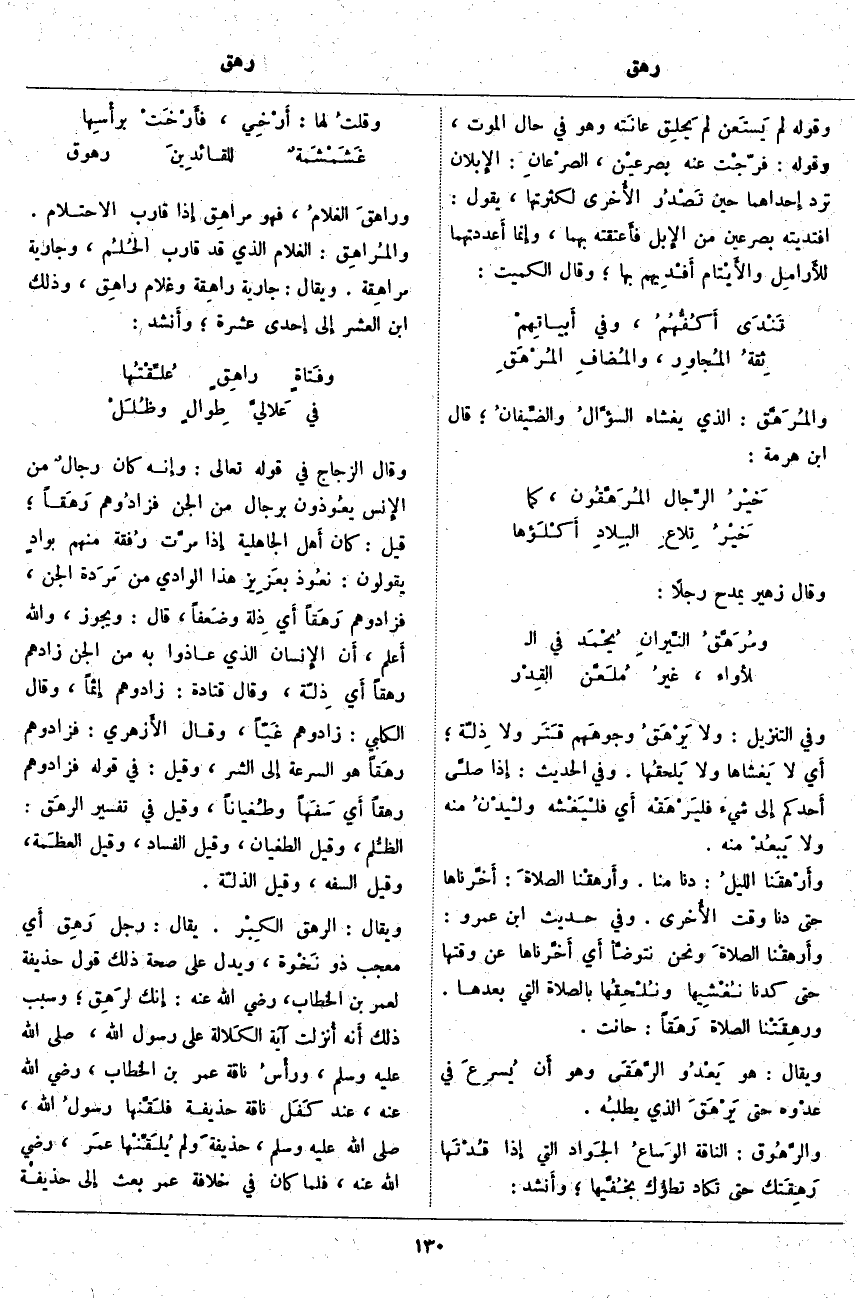 رهق
رهق
وقوله لم يَستَعن لم يَحلِق عانته وهو في حال الموت ،
وقوله : فرّجْت عنه بصرعيْن ، الصرْعانِ : الإبلان
ترِد إحداهما حين تَصْدُر الأُخرى لكثرتها ، يقول :
افتديته بصرعين من الإبل فأعتقته بهما ، وإنما أعددتهما
للأرامل والأيْتام أفْديهم بها ؛ وقال الكميت :
تَنْدَى أَكُفُّهُمُ ، وفي أبياتِهِمْ
ثِقةُ المُجاوِرِ ، والمُضافِ المُرْهَقِ
والمُرَهَّق : الذي يغشاه السؤّالُ والضِّيفانُ ؛ قال
ابن هرمة :
خَيْرُ الرِّجال المُرَهَّقُون ، كما
خَيْرُ تِلاعِ البِلادِ أكْلَؤها
وقال زهير يمدح رجلًا :
ومُرَهَّقُ النِّيرانِ يُحْمَد في الـ
لأواء ، غيرُ مُلَعَّن القِدْر
وفي التنزيل : ولا يَرْهَقُ وجوهَهم قَتَر ولا ذِلّة ؛
أي لا يَغشاها ولا يَلحقُها . وفي الحديث : إذا صلَّى
أحدكم إلى شيء فليَرْهَقْه أي فلْيَغْشه ولْيدْنُ منه
ولا يَبعُدْ منه .
وأرْهقَنا الليلُ : دنا منا . وأرهقْنا الصلاةَ : أخّرناها
حتى دنا وقت الأُخرى . وفي حديث ابن عمرو :
وأرهقْنا الصلاةَ ونحن نتوضأ أي أخّرناها عن وقتها
حتى كدنا نُغْشِيها ونُلْحِقُها بالصلاة التي بعدها .
ورهِقَتْنا الصلاة رَهَقاً : حانت .
ويقال : هو يَعْدُو الرَّهَقَى وهو أن يُسرعَ في
عدْوه حتى يَرْهَقَ الذي يطلبُه .
والرَّهُوق : الناقة الوَساعُ الجَواد التي إذا قُدْتَها
رَهِقَتك حتى تكاد تطؤك بخُفَّيها ؛ وأنشد :
وقلتُ لها : أرْخِي ، فأَرْخَتْ برأْسِها
غَشَمْشَمةٌ للقائدِينَ رهوق
وراهقَ الغلامُ ، فهو مراهِق إذا قارب الاحتلام .
والمُراهِق : الغلام الذي قد قارب الحُلُم ، وجارية
مراهِقة . ويقال : جارية راهِقة وغلام راهِق ، وذلك
ابن العشر إلى إحدى عشرة ؛ وأنشد :
وفَتاةٍ راهِقٍ عُلِّقْتُها
في عَلاليَّ طِوالٍ وظُلَلْ
وقال الزجاج في قوله تعالى : وإنه كان رجالٌ من
الإنس يعُوذون برجال من الجن فزادُوهم رَهَقاً ؛
قيل : كان أهل الجاهلية إذا مرّت رُفقة منهم بوادٍ
يقولون : نعُوذ بعَزِيز هذا الوادي من مَرَدة الجن ،
فزادوهم رَهَقاً أي ذِلة وضَعفاً ، قال : ويجوز ، والله
أعلم ، أن الإنسان الذي عاذوا به من الجن زادهم
رهقاً أي ذِلّة ، وقال قتادة : زادوهم إثماً ، وقال
الكلبي : زادوهم غَيّاً ، وقال الأزهري : فزادوهم
رهَقاً هو السرعة إلى الشر ، وقيل : في قوله فزادوهم
رهقاً أي سَفَهاً وطُغياناً ، وقيل في تفسير الرهَق :
الظُّلم ، وقيل الطغيان ، وقيل الفساد ، وقيل العظَمة ،
وقيل السفه ، وقيل الذلّة .
ويقال : الرهق الكِبْر . يقال : رجل رَهِق أي
معجب ذو نَخْوة ، ويدل على صحة ذلك قول حذيفة
لعمر بن الخطاب ، رضي الله عنه : إنك لرَهِق ؛ وسبب
ذلك أنه أُنزلت آية الكَلالة على رسول الله ، صلى الله
عليه وسلم ، ورأْسُ ناقة عمر بن الخطاب ، رضي الله
عنه ، عند كَفَل ناقة حذيفة فلقّنها رسولُ الله ،
صلى الله عليه وسلم ، حذيفةَ ولم يُلَقِّنْها عمَر ، رضي
الله عنه ، فلما كان في خلافة عمر بعث إلى حذيفةْ
١٣٠